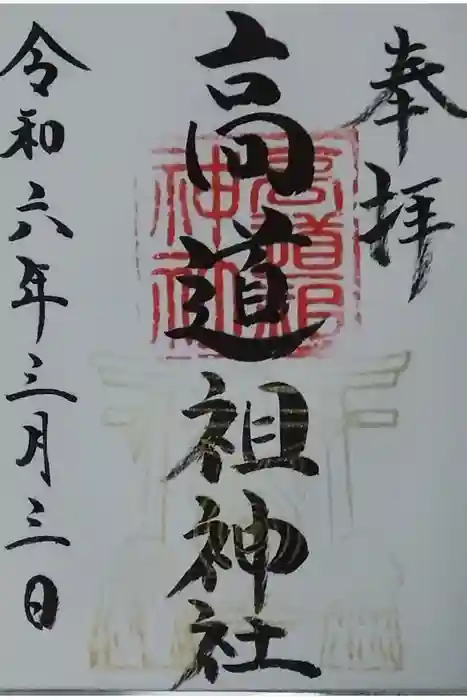 奉拝
高道祖神社
高道祖
神社
令和六年三月三日